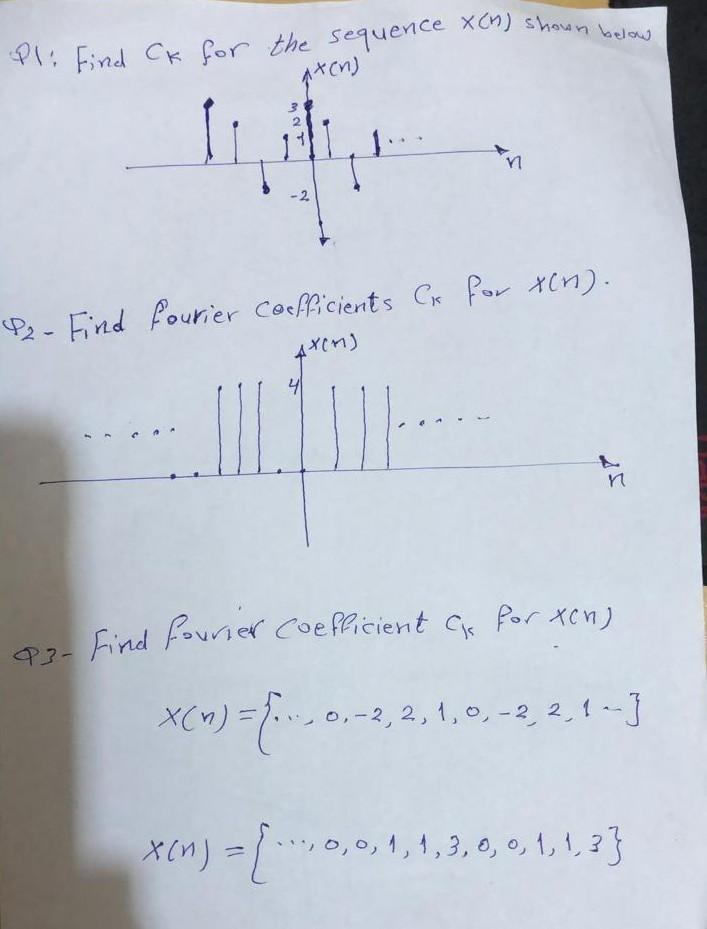 Q1: Find Ck for the sequence x(n) shown below
x(n)
3
2
1
...
n
-2
Q2- Find fourier coefficients Ck for x(n).
x(n)
4
..... ......
n
Q3- Find fourier coefficient Ck for x(n)
x(n) = {..., 0, -2, 2, 1, 0, -2, 2, 1 --}
x(n) = {..., 0, 0, 1, 1, 3, 0, 0, 1, 1, 3}